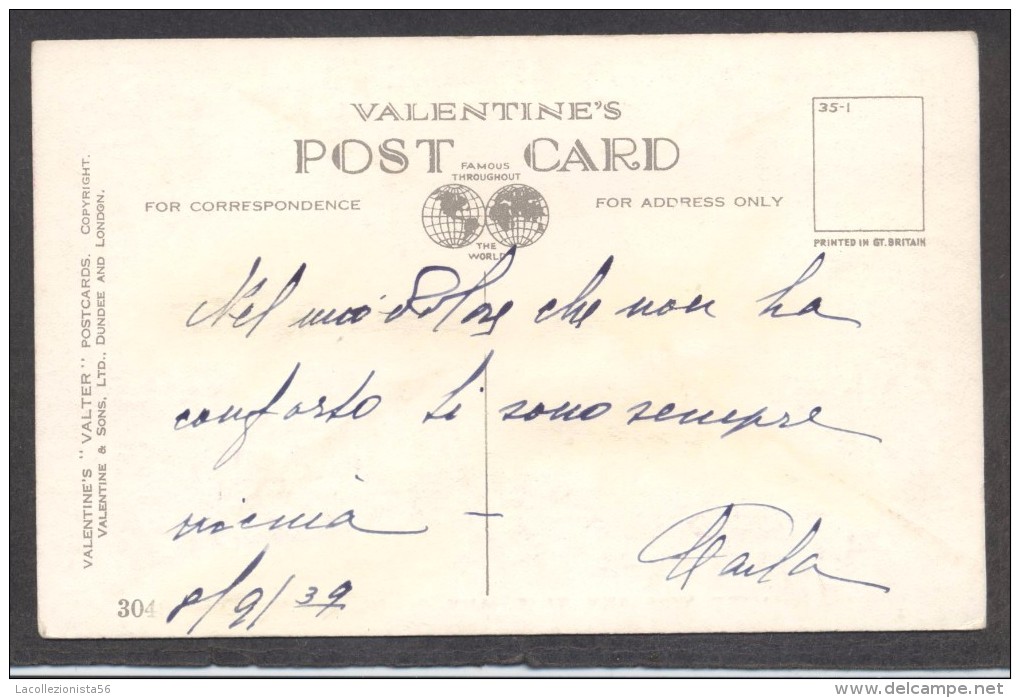 VALENTINE'S
POST CARD
FAMOUS
THROUGHOUT
THE
WORLD
FOR CORRESPONDENCE
FOR ADDRESS ONLY
35-1
PRINTED IN GT. BRITAIN
VALENTINE'S "VALTER" POSTCARDS. COPYRIGHT.
VALENTINE & SONS, LTD., DUNDEE AND LONDON.
Nel mio dolore che non ha
conforto ti sono sempre
vicina –
Carla
8/9/39
304
Lacollezionista56
www.delcampe.net